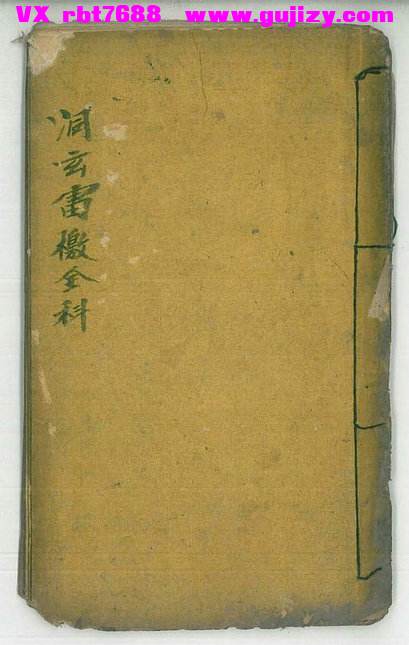 VX rbt7688 www.gujizy.com
洞玄雷檄全科